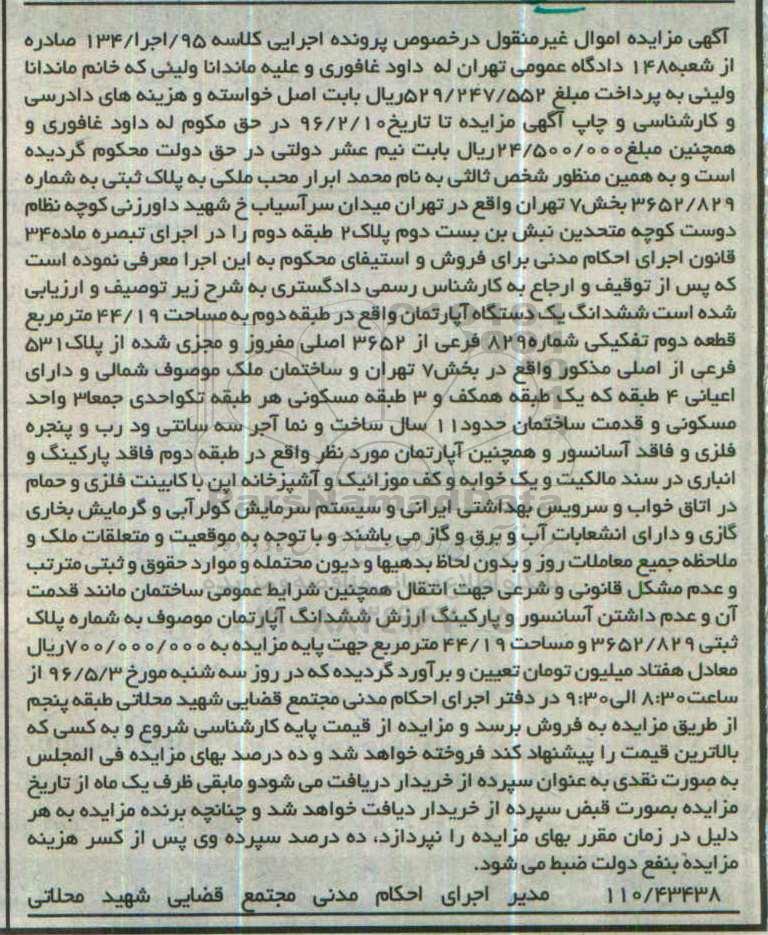 آگهی مزایده اموال غیرمنقول درخصوص پرونده اجرایی کلاسه ۹۵/اجرا/۱۳۴ صادره
از شعبه۱۴۸ دادگاه عمومی تهران له داود غافوری و علیه ماندانا ولیئی که خانم ماندانا
ولیئی به پرداخت مبلغ ۵۲۹/۲۴۷/۵۵۲ریال بابت اصل خواسته و هزینه های دادرسی
و کارشناسی و چاپ آگهی مزایده تا تاریخ۹۶/۲/۱۰ در حق مکوم له داود غافوری و
همچنین مبلغ۲۴/۵۰۰/۰۰۰ریال بابت نیم عشر دولتی در حق دولت محکوم گردیده
است و به همین منظور شخص ثالثی به نام محمد ابرار محب ملکی به پلاک ثبتی به شماره
۳۶۵۲/۸۲۹ بخش۷ تهران واقع در تهران میدان سرآسیاب خ شهید داورزنی کوچه نظام
دوست کوچه متحدین نبش بن بست دوم پلاک۲ طبقه دوم را در اجرای تبصره ماده۳۴
قانون اجرای احکام مدنی برای فروش و استیفای محکوم به این اجرا معرفی نموده است
که پس از توقیف و ارجاع به کارشناس رسمی دادگستری به شرح زیر توصیف و ارزیابی
شده است ششدانگ یک دستگاه آپارتمان واقع در طبقه دوم به مساحت ۴۴/۱۹ مترمربع
قطعه دوم تفکیکی شماره۸۲۹ فرعی از ۳۶۵۲ اصلی مفروز و مجزی شده از پلاک۵۳۱
فرعی از اصلی مذکور واقع در بخش۷ تهران و ساختمان ملک موصوف شمالی و دارای
اعیانی ۴ طبقه که یک طبقه همکف و ۳ طبقه مسکونی هر طبقه تکواحدی جمعا۳ واحد
مسکونی و قدمت ساختمان حدود۱۱ سال ساخت و نما آجر سه سانتی ود رب و پنجره
فلزی و فاقد آسانسور و همچنین آپارتمان مورد نظر واقع در طبقه دوم فاقد پارکینگ و
انباری در سند مالکیت و یک خوابه و کف موزائیک و آشپزخانه این با کابینت فلزی و حمام
در اتاق خواب و سرویس بهداشتی ایرانی و سیستم سرمایش کولرآبی و گرمایش بخاری
گازی و دارای انشعابات آب و برق و گاز می باشند و با توجه به موقعیت و متعلقات ملک و
ملاحظه جمیع معاملات روز و بدون لحاظ بدهیها و دیون محتمله و موارد حقوق و ثبتی مترتب
و عدم مشکل قانونی و شرعی جهت انتقال همچنین شرایط عمومی ساختمان مانند قدمت
آن و عدم داشتن آسانسور و پارکینگ ارزش ششدانگ آپارتمان موصوف به شماره پلاک
ثبتی ۳۶۵۲/۸۲۹ و مساحت ۴۴/۱۹ مترمربع جهت پایه مزایده به ۷۰۰/۰۰۰/۰۰۰ریال
معادل هفتاد میلیون تومان تعیین و برآورد گردیده که در روز سه شنبه مورخ ۹۶/۵/۳ از
ساعت۸:۳۰ الی۹:۳۰ در دفتر اجرای احکام مدنی مجتمع قضایی شهید محلاتی طبقه پنجم
از طریق مزایده به فروش برسد و مزایده از قیمت پایه کارشناسی شروع و به کسی که
بالاترین قیمت را پیشنهاد کند فروخته خواهد شد و ده درصد بهای مزایده فی المجلس
به صورت نقدی به عنوان سپرده از خریدار دریافت می شودو مابقی ظرف یک ماه از تاریخ
مزایده بصورت قبض سپرده از خریدار دیافت خواهد شد و چنانچه برنده مزایده به هر
دلیل در زمان مقرر بهای مزایده را نپردازد، ده درصد سپرده وی پس از کسر هزینه
مزایده بنفع دولت ضبط می شود.
۱۱۰/۴۳۴۳۸ مدیر اجرای احکام مدنی مجتمع قضایی شهید محلاتی
ParsNamadData